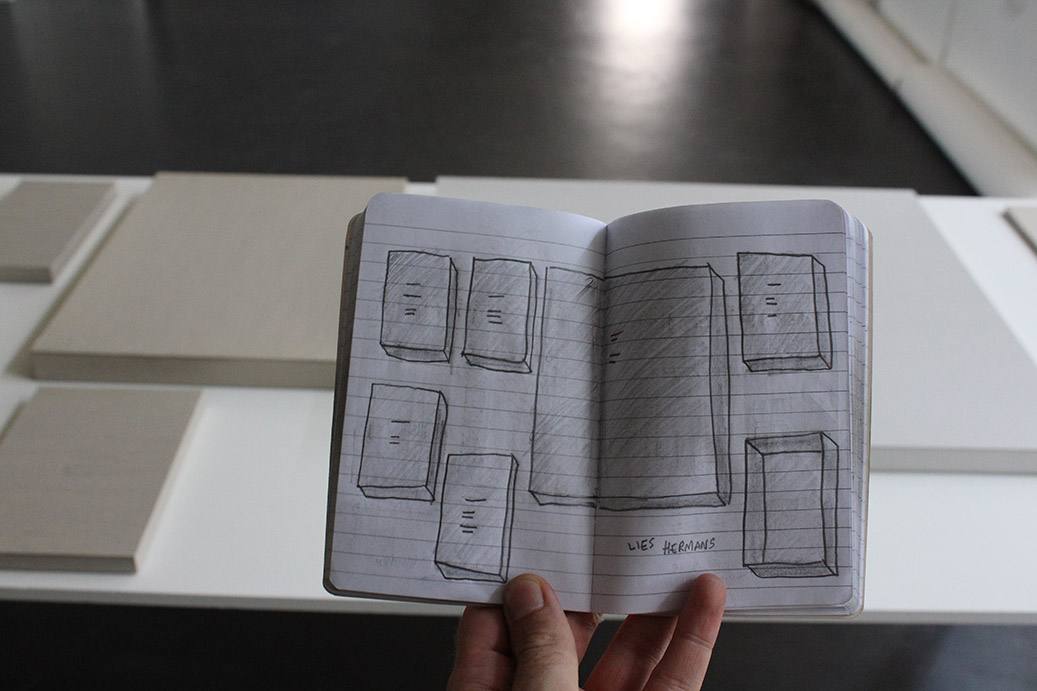 LIES HERMANS